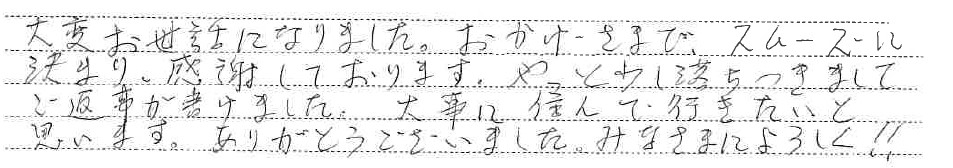 大変お世話になりました。おかげさまで、スムースに
決まり、感謝しております。やっと少し落ちつきまして
ご返事が書けました。大事に住んで行きたいと
思います。ありがとうございました。みなさまによろしく!!